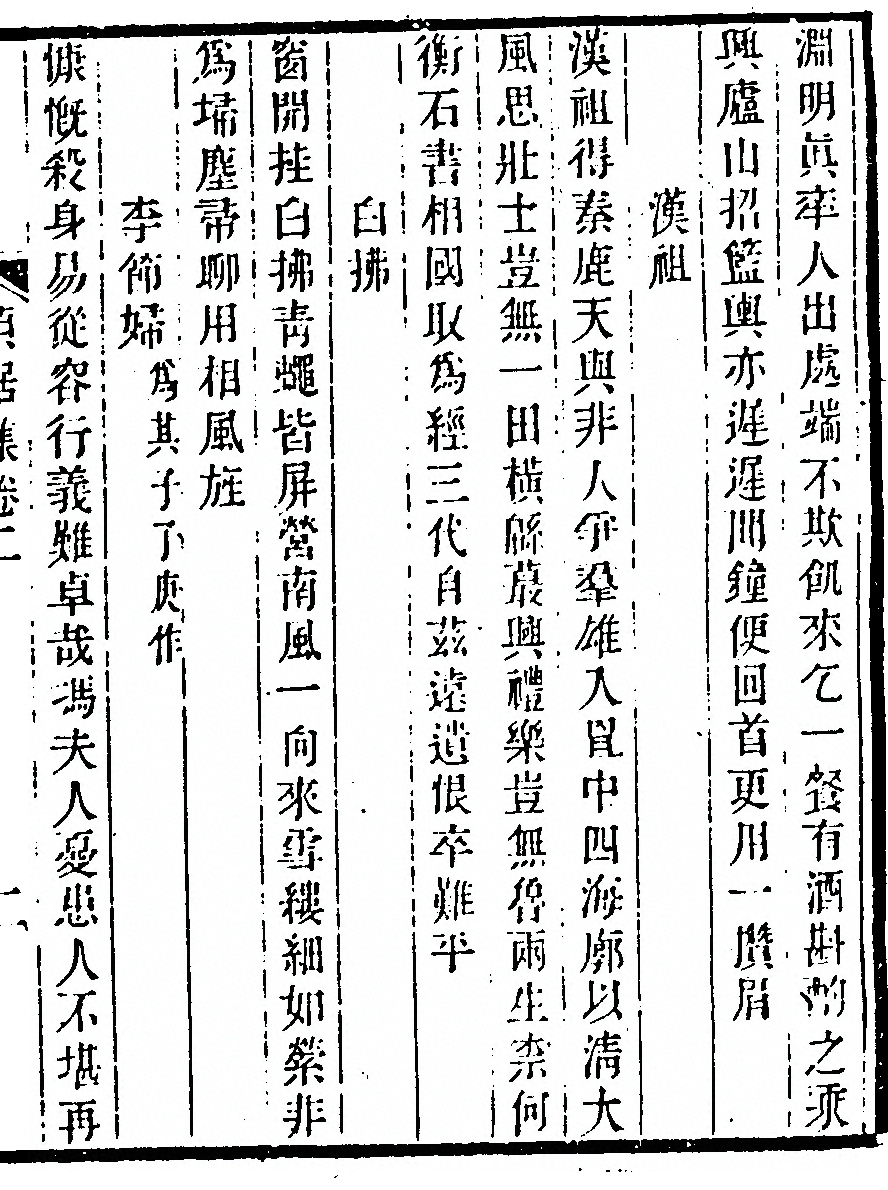 淵明眞率人出處端不欺飢來乞一餐有酒斟酌之乘
興廬山招籃輿亦遲遲聞鐘便回首更用一攢眉
漢祖
漢祖得秦鹿天與非人爭羣雄入胷中四海廓以清大
風思壯士豈無一田橫緜蕞興禮樂豈無魯兩生柰何
衡石書相國取爲經三代自茲遠遺恨卒難平
白拂
窗開挂白拂靑蠅皆屏營南風一向來雪縷細如縈非
爲埽塵帚聊用相風旌
李節婦爲其子子庚作
慷慨殺身易從容行義難卓哉馮夫人憂患人不堪再
貞居集卷二